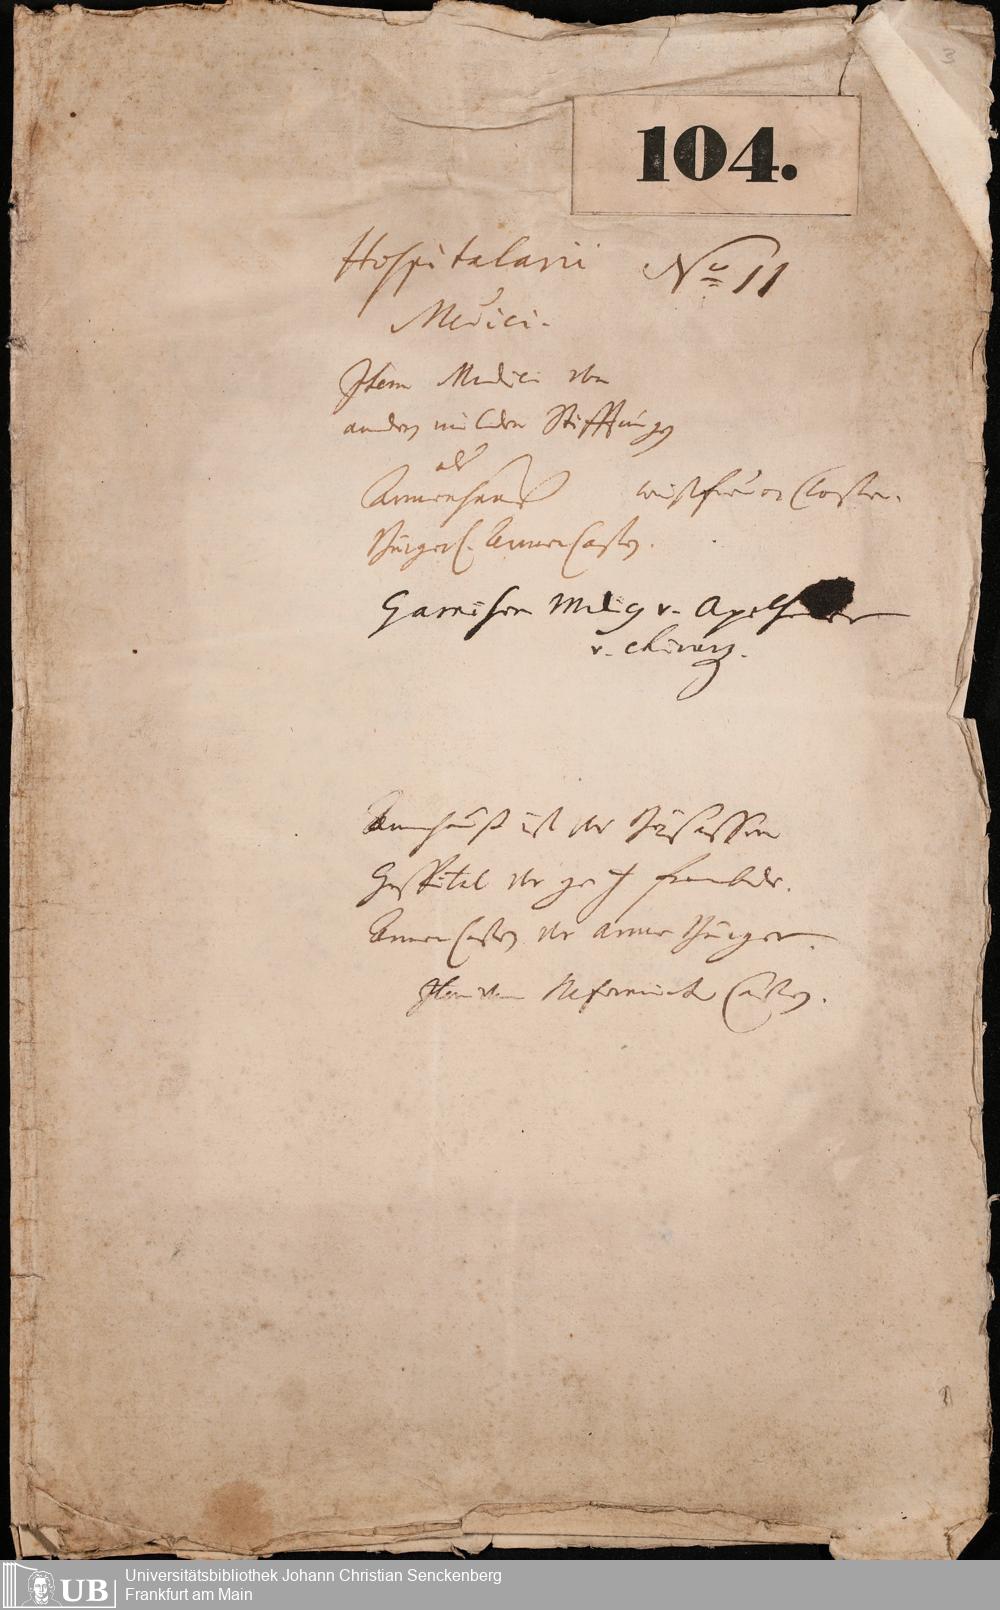 3
104.
Hospitalarii No 11
Medici.
Item Medici von
andern milden Stifftungen
als
Armenhauß weißfrauen Closter.
Bürgerl. Armen Casten.
Garnison Medic v. Apotheker
v. chirurg.
Armhauß ist vor Beysassen
Hospital vor frembde.
Armen Casten vor arme Bürger.
Item Casten.
Universitätsbibliothek Johann Christian Senckenberg
Frankfurt am Main
UB